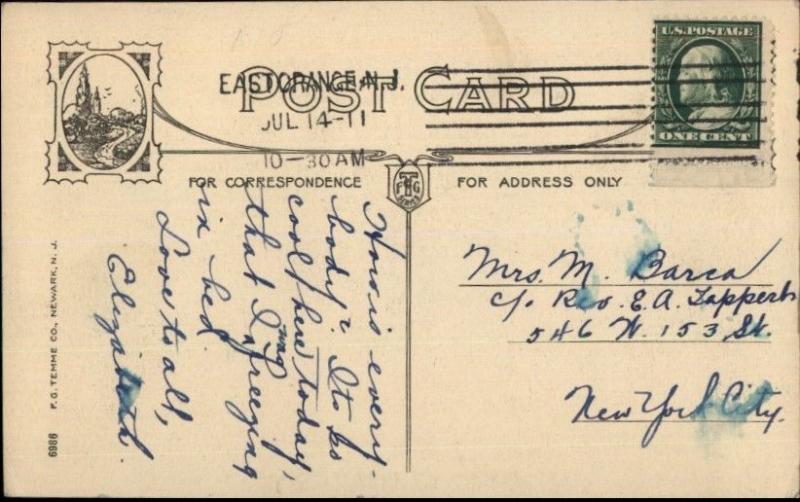 EAST ORANGE, N.J.
JUL 14-11
10-30 AM
POST CARD
U.S. POSTAGE
ONE CENT
FOR CORRESPONDENCE
FTG
SERIES
FOR ADDRESS ONLY
How is every-
body? It is so
cool here today,
that I was freezing
in bed
Love to all,
Elizabeth.
Mrs. M. Barca
c/o Rev. E. A. Tappert
546 W. 153, St.
New York City.
F. G. TEMME CO., NEWARK, N. J.
6986